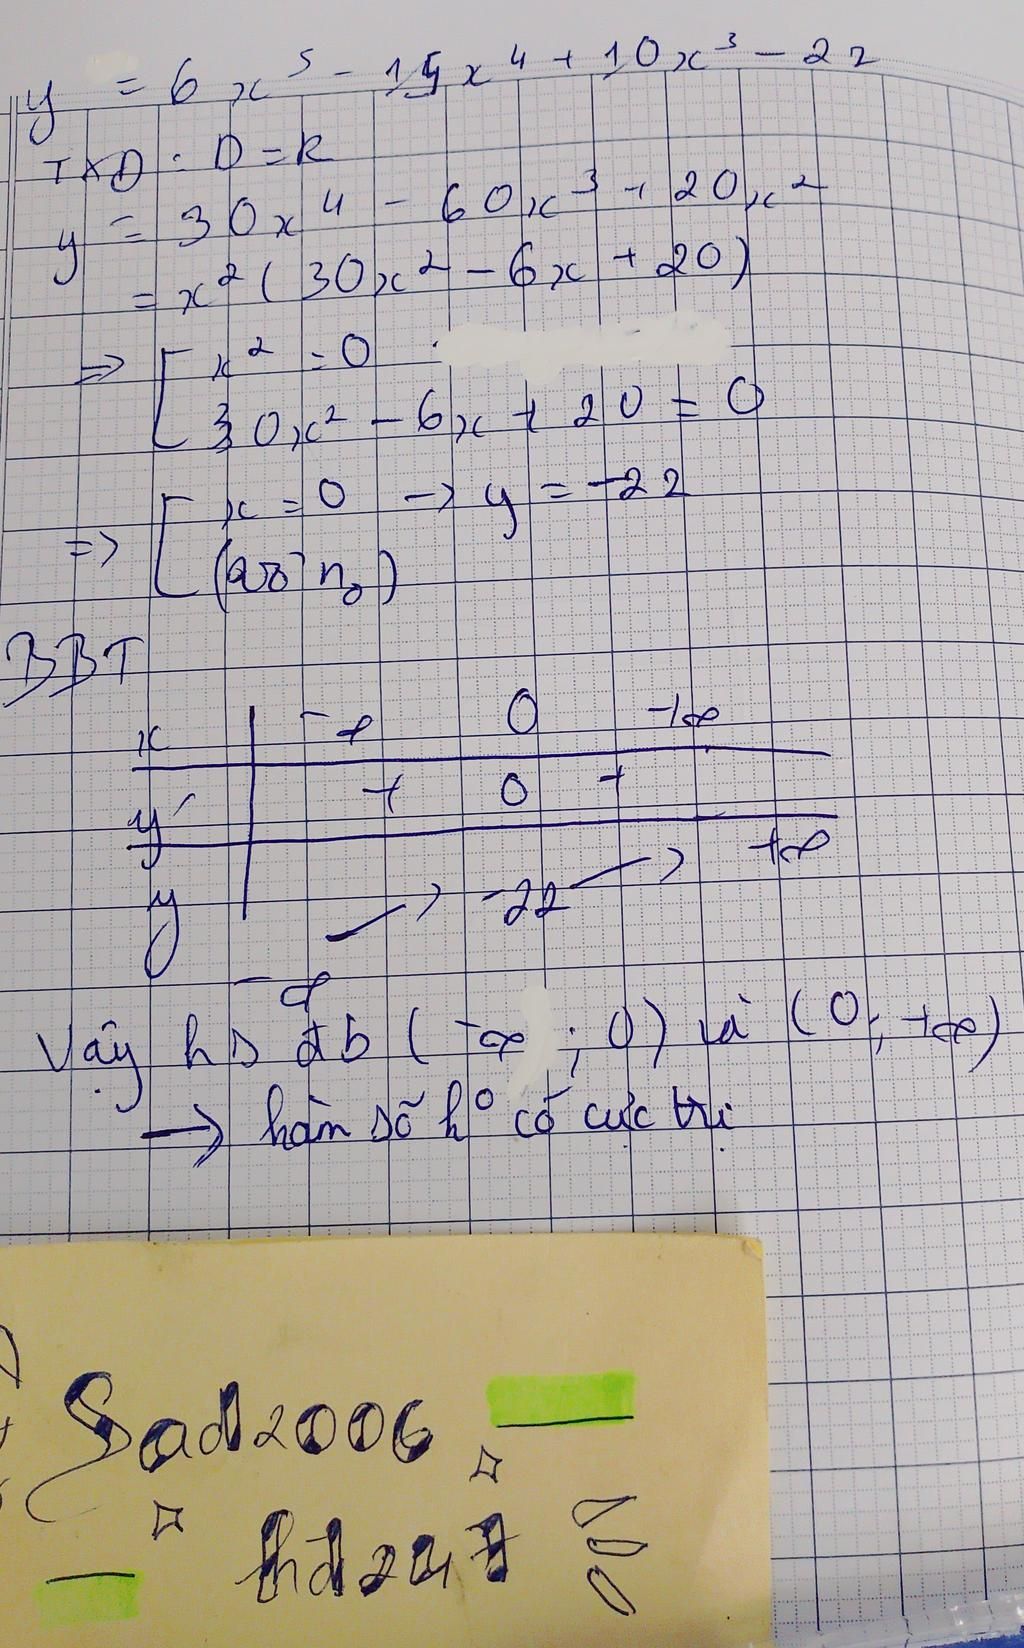 y = 6x⁵ - 15x⁴ + 10x³ - 22
TXD : D = R
y = 30x⁴ - 60x³ + 20x²
= x² ( 30x² - 6x + 20)
=> [ x² = 0
30x² - 6x + 20 = 0
=> [ x = 0 -> y = -22
(vô n₀)
BBT
x -∞ 0 +∞
y' + 0 +
y -∞ -22 +∞
Vậy hs đb ( -∞ ; 0) và (0; +∞)
-> hàm số k⁰ có cực trị
Sad2006
hd247